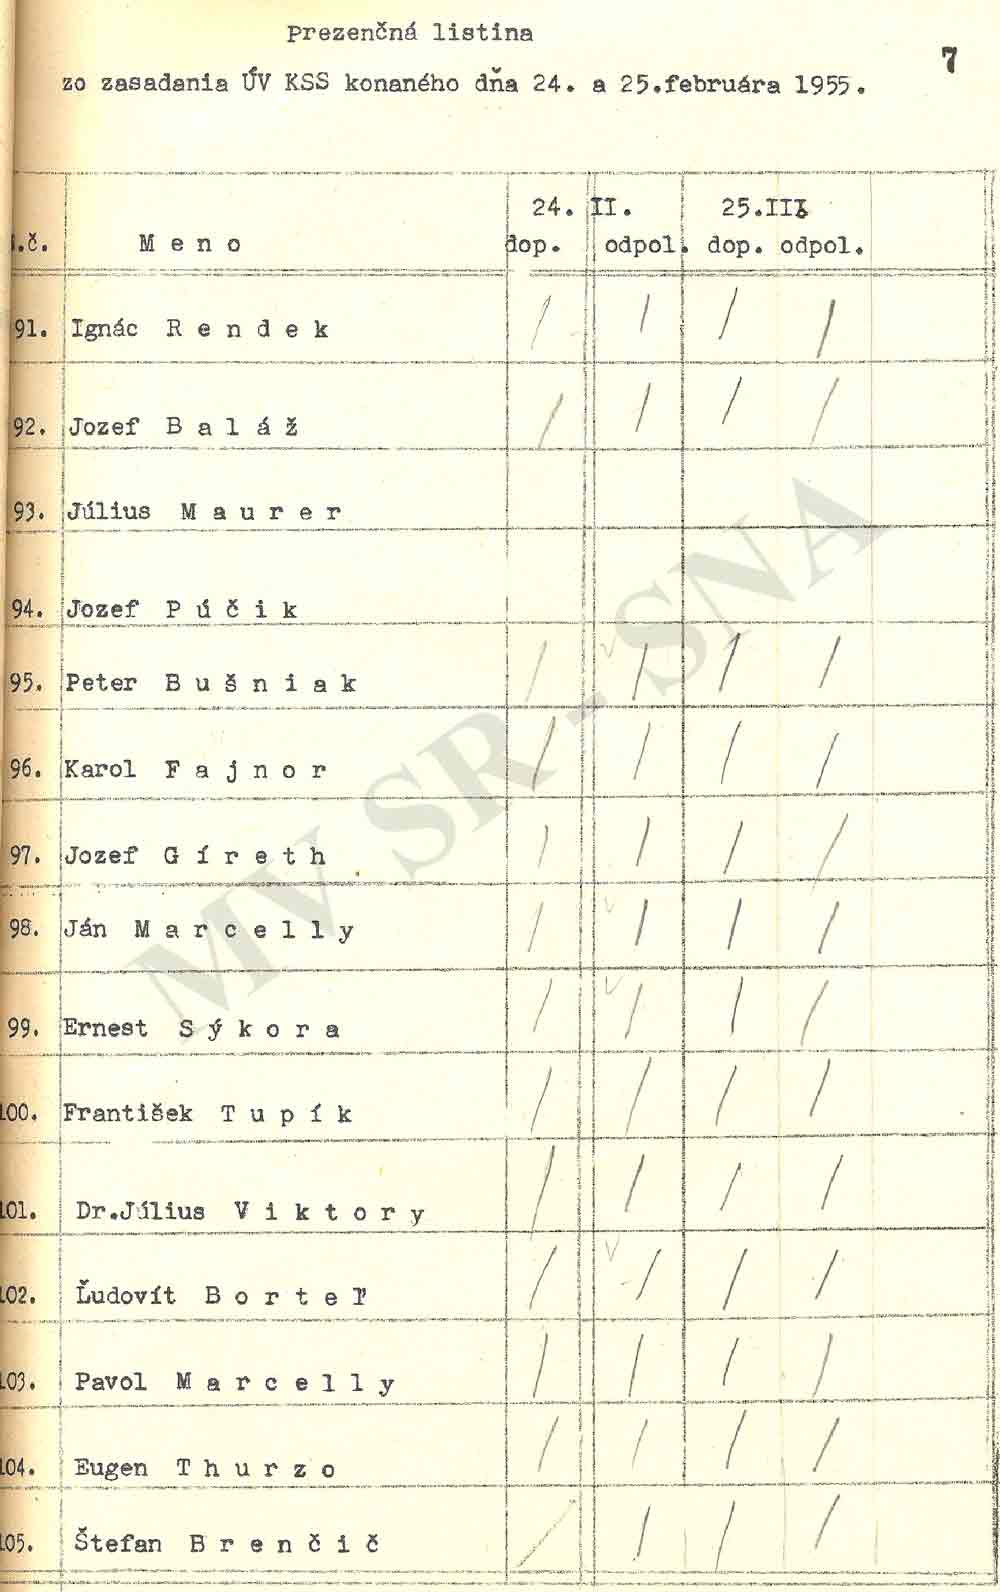 Prezenčná listina
7
zo zasadania ÚV KSS konaného dňa 24. a 25.februára 1955.
24. II. 25.II
.č. M e n o dop. odpol. dop. odpol.
91. Ignác R e n d e k / / / /
92. Jozef B a l á ž / / / /
93. Július M a u r e r
94. Jozef P ú č i k
95. Peter B u š n i a k / / / /
96. Karol F a j n o r / / / /
97. Jozef G í r e t h / / / /
98. Ján M a r c e l l y / / / /
99. Ernest S ý k o r a / / / /
100. František T u p í k / / / /
101. Dr.Július V i k t o r y / / / /
102. Ľudovít B o r t e ľ / / / /
103. Pavol M a r c e l l y / / / /
104. Eugen T h u r z o / / / /
105. Štefan B r e n č i č / / / /
MV SR - SNA